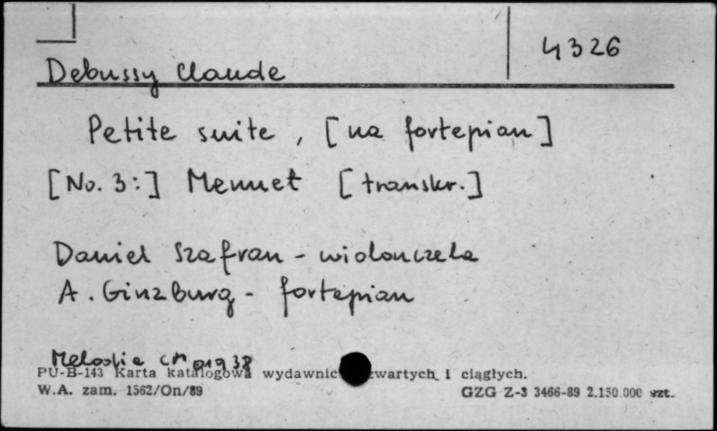 4326
Debussy Claude
Petite suite, [na fortepian]
[No. 3:] Menuet [transkr.]
Daniel Szafran - wiolonczela
A. Ginzburg - fortepian
Melodia CM 01938
PU-B-143 Karta katalogowa wydawnic wartych i ciągłych.
W.A. zam. 1562/On/89 GZG Z-3 3466-89 2.150.000 szt.